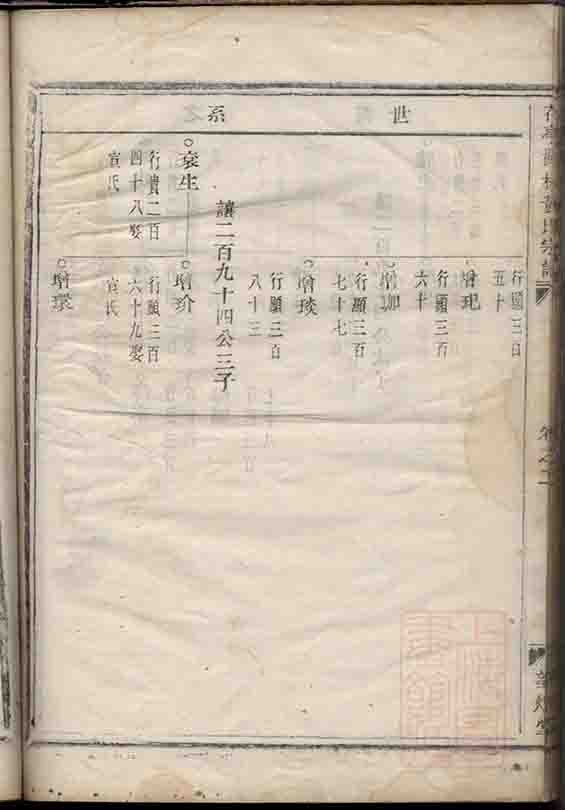 世系
行願三百
五十
增玘
行願三百
六十
增珈
行願三百
七十七
增琰
行願三百
八十三
讓二百九十四公三子
袞生
行貴二百
四十八娶
宣氏
增玠
行願三百
六十九娶
宣氏
增環
卷之二